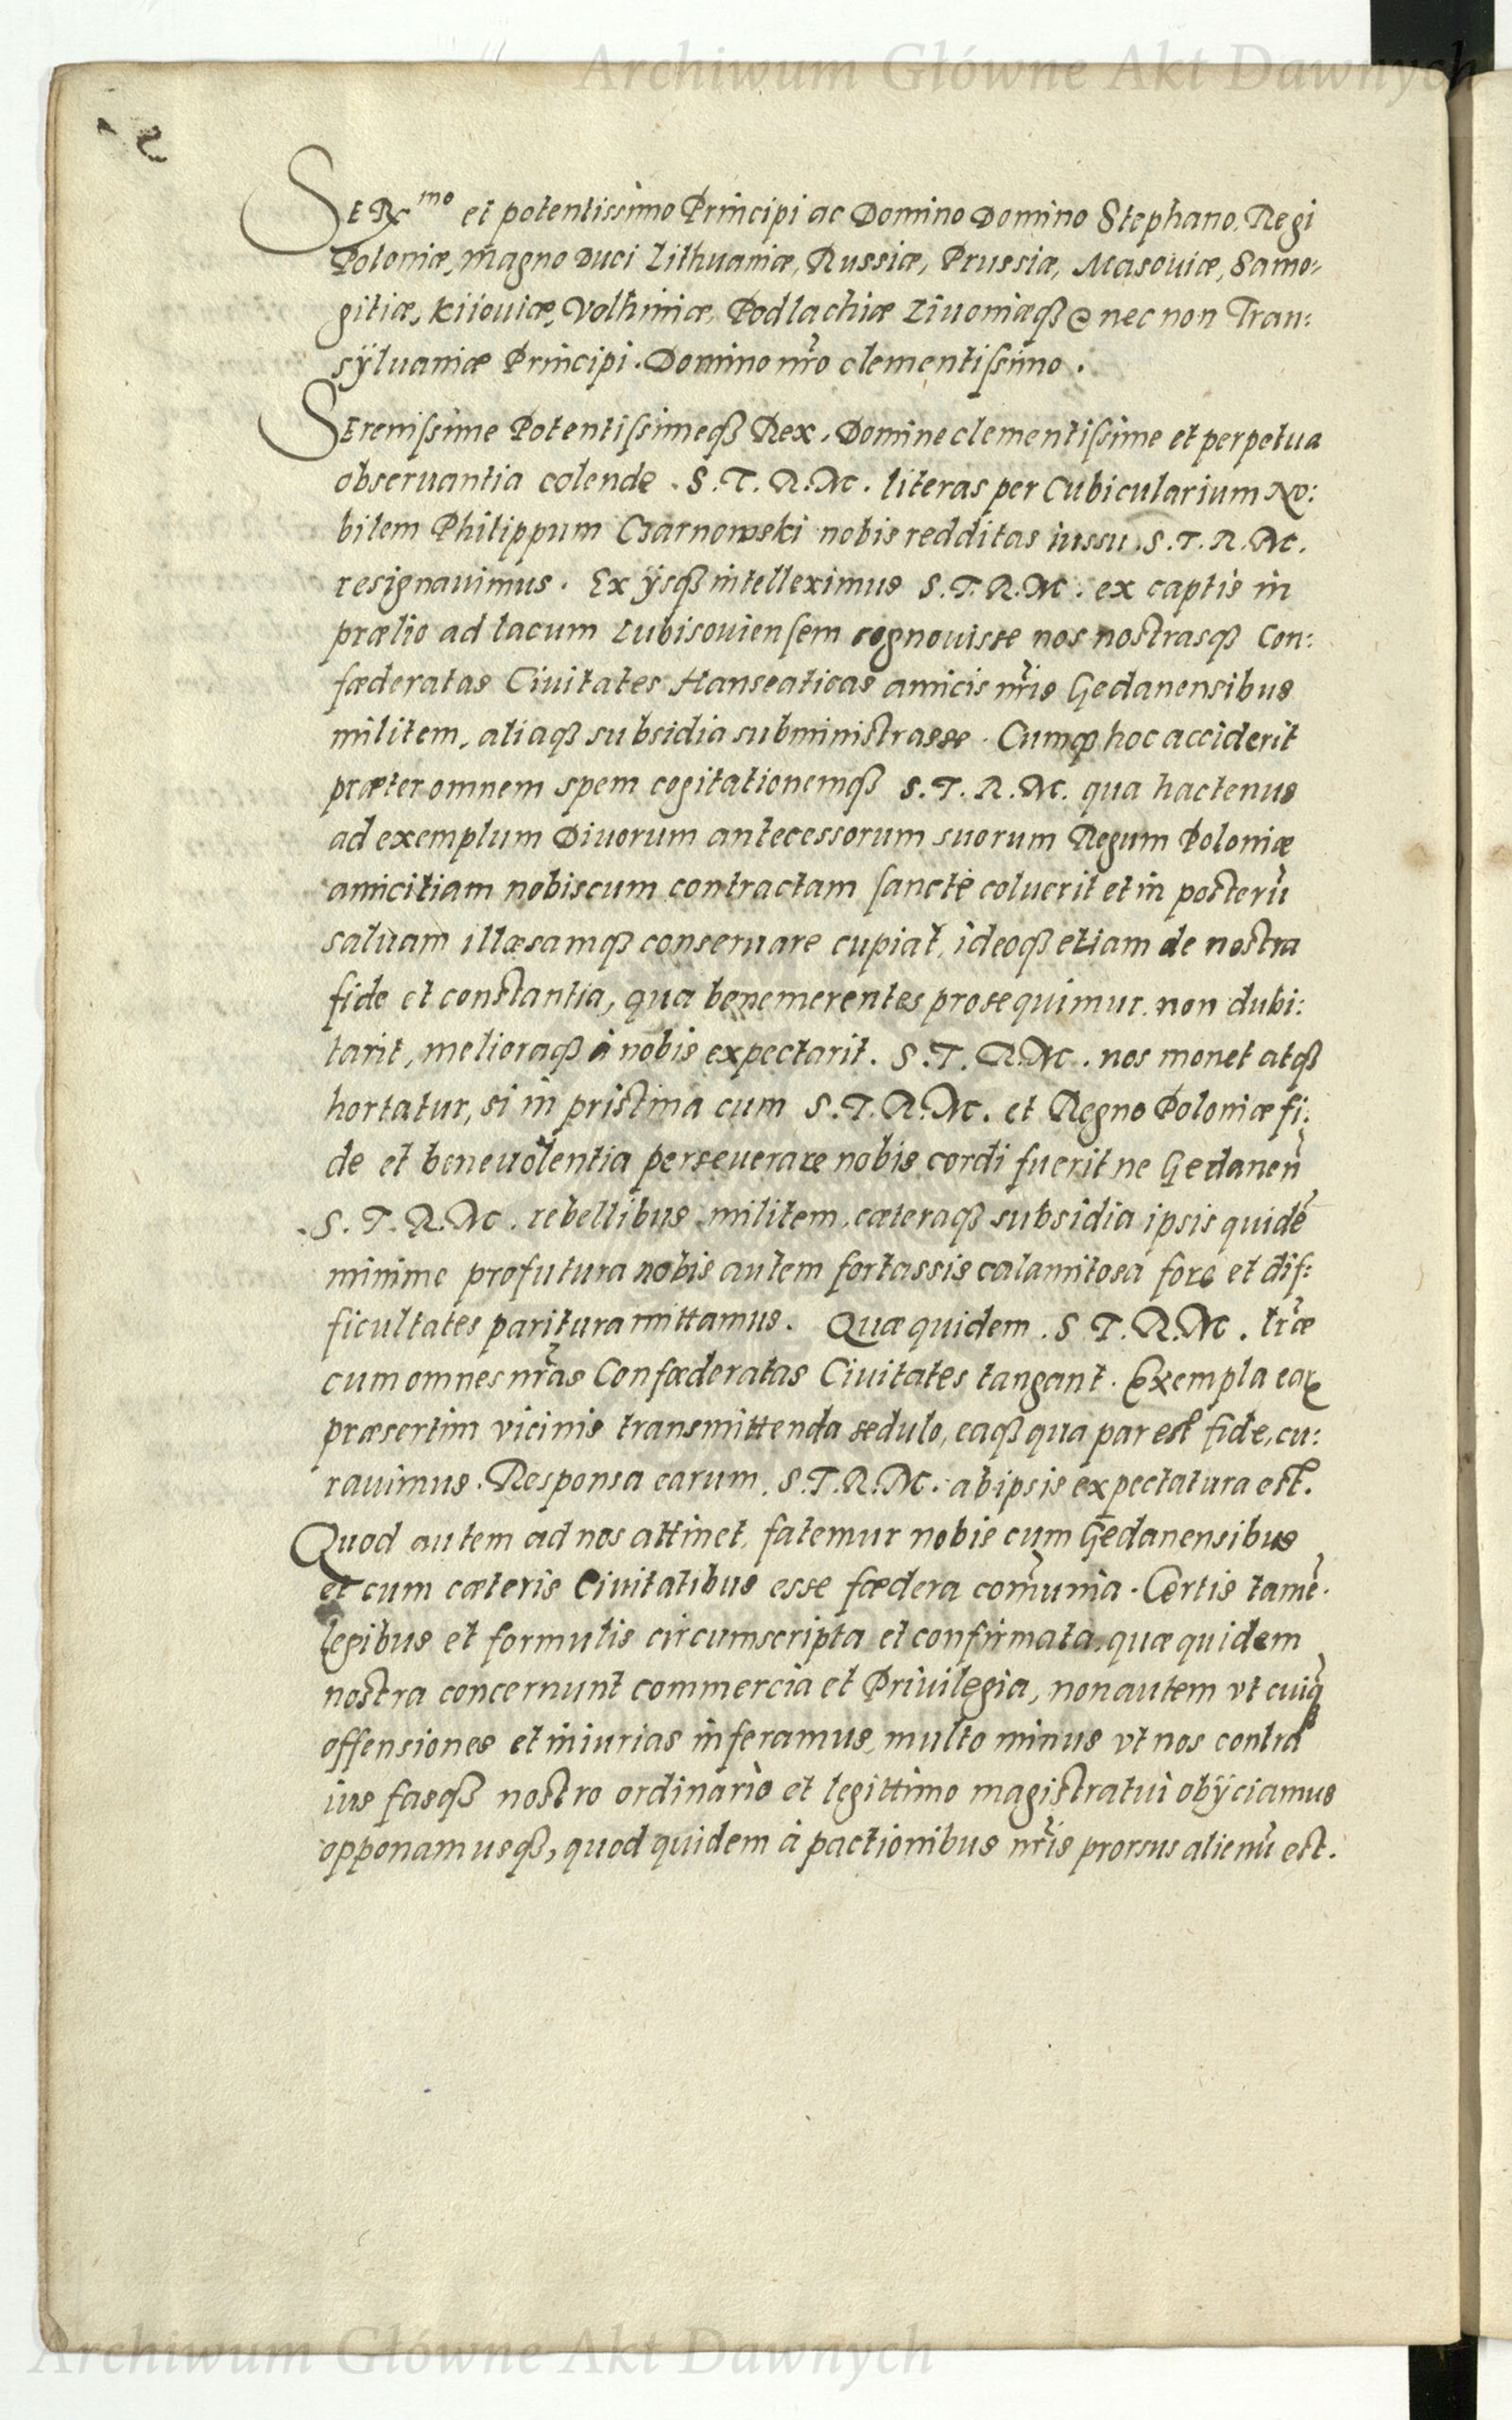 Archiwum Główne Akt Dawnych
Ser.mo et potentissimo Principi ac Domino Domino Stephano, Regi
Poloniæ, magno Duci Lithuaniæ, Russiæ, Prussiæ, Masouiæ, Samo:
gitiæ, Kiiouiæ, Volhiniæ, Podlachiæ Liuoniæqȝ nec non Tran:
sÿluaniæ Principi. Domino nr̃o clementiſsimo.
Sereniſsime Potentiſsimeqȝ Rex, Domine clementiſsime et perpetua
obseruantia colende. S.T.R.M. literas per Cubicularium No:
bilem Philippum Czarnowski nobis redditas iussu S.T.R.M.
resignauimus. Ex ÿsqȝ intelleximus S.T.R.M. ex captis in
prælio ad lacum Lubisouienſem cognouisse nos nostrasqȝ Con:
fæderatas Ciuitates Hanseaticas amicis nr̃is Gedanensibus
militem, aliaqȝ subsidia subministrasse. Cumqȝ hoc acciderit
præter omnem spem cogitationemqȝ S.T.R.M. qua hactenus
ad exemplum Diuorum antecessorum suorum Regum Poloniæ
amicitiam nobiscum contractam ſanctè coluerit et in posterũ
saluam illæsamqȝ conseruare cupiat, ideoqȝ etiam de nostra
fide et constantia, qua benemerentes prosequimur, non dubi:
tarit, melioraqȝ à nobis expectarit. S.T.R.M. nos monet atqȝ
hortatur, si in pristina cum S.T.R.M. et Regno Poloniæ fi:
de et beneuolentia perseuerare nobis cordi fuerit ne Gedaneñ
S.T.R.M. rebellibus militem, cæteraqȝ subsidia ipsis quidẽ
minime profutura nobis autem fortassis calamitosa fore et dif:
ficultates paritura mittamus. Quæ quidem S.T.R.M. lr̃æ
cum omnes nr̃as Confæderatas Ciuitates tangant. Exempla eaꝝ
præsertim vicinis transmittenda sedulo, eaqȝ qua par est fide, cu:
rauimus. Responsa earum S.T.R.M. ab ipsis expectatura est.
Quod autem ad nos attinet, fatemur nobis cum Gedanensibus
et cum cæteris Ciuitatibus esse fædera com̃unia. Certis tamẽ
legibus et formulis circumscripta et confirmata, quæ quidem
nostra concernunt commercia et Priuilegia, non autem vt cuiq̃
offensiones et iniurias inferamus, multo minus vt nos contra
ius fasqȝ nostro ordinario et legittimo magistratui obÿciamus
opponamusqȝ, quod quidem à pactionibus nr̃is prorsus alienũ est.
Archiwum Główne Akt Dawnych